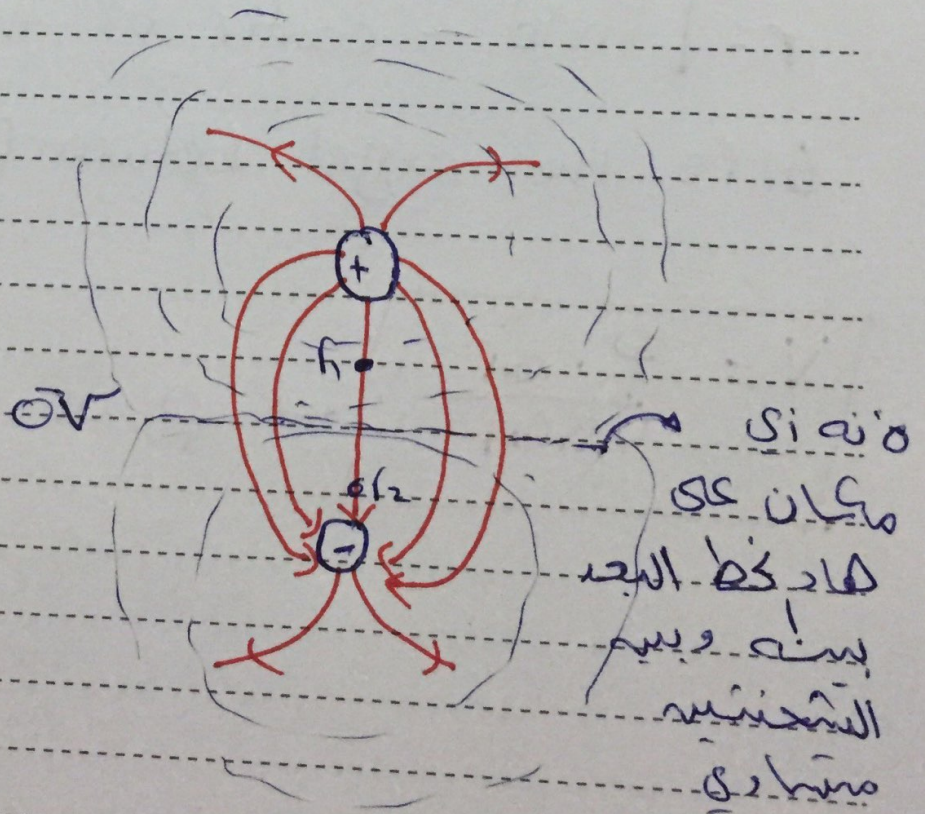 +
r₁
0V
منه أي
مكان على
هاد خط البعد
بينه وبين
r₂
-
الشحنتين
متساوي